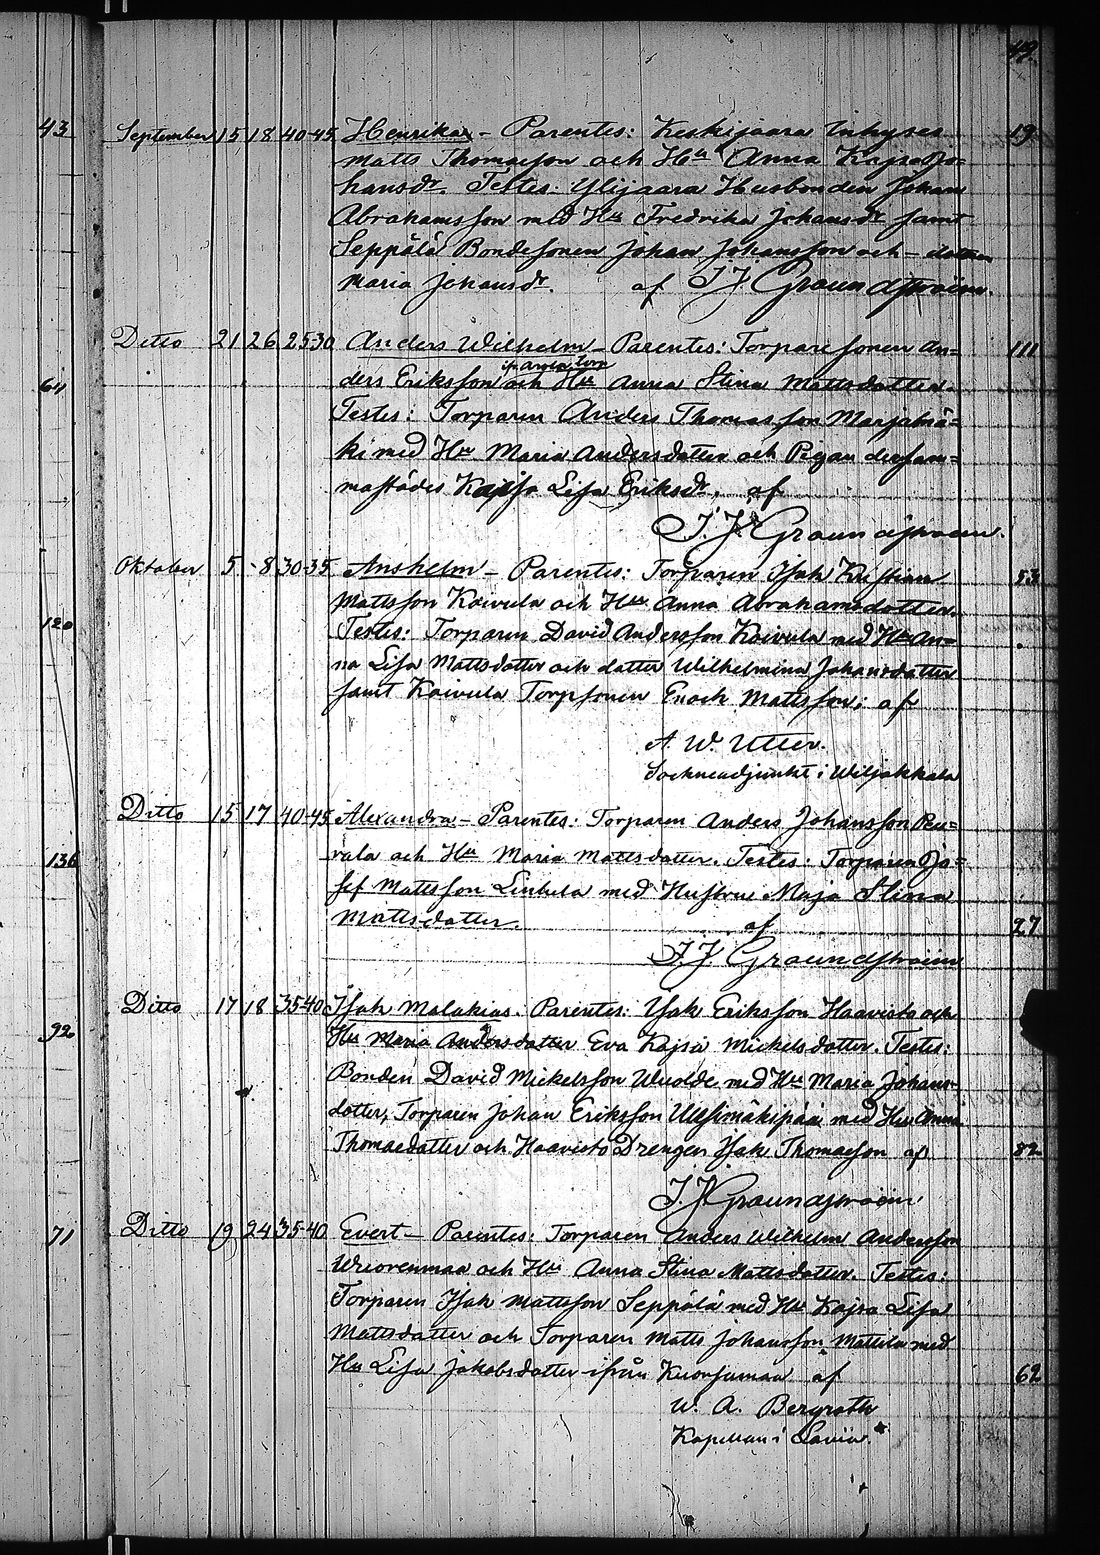 49.
43 September 15 18 40-45 Henrika – Parentes: Keskijaara Inhyses 19
Matts Thomasson och Hu Anna Kajsa Jo=
hansdr Testes: Ylijaara Husbonden Johan
Abrahamsson med Hu Fredrika Johansdr samt
Seppälä Bondesonen Johan Johansson och – dottren
Maria Johansdr. af J. J. Graundstroëm.
Ditto 21 26 25-30 Anders Wilhelm – Parentes: Torpare sonen An= 111
64 ders Eriksson och Hu Anna Stina Mattsdotter.
Testes: Torparen Anders Thomasson Marjamä=
ki med Hu Maria Andersdotter och Pigan dersam=
mastädes Kajsa Lisa Eriksdr, af
J. J. Graundstroëm.
Oktober 5 8 30-35 Anshelm – Parentes: Torparen Isak Kristian 53
Mattsson Koivula och Hu Anna Abrahamsdotter.
120 Testes: Torparen David Andersson Koivula med Hu An=
na Lisa Mattsdotter och dotter Wilhelmina Johansdotter
samt Koivula Torpsonen Enoch Mattsson; af
A. W. Utter.
Sockneadjunkt i Wiljakkala
Ditto 15 17 40-45 Alexandra – Parentes: Torparen Anders Johansson Peu=
136 rala och Hu Maria Mattsdotter. Testes: Torparen Jo=
sef Mattsson Linkula med Hustru Maja Stina
Mattsdotter. af 27
J. J. Graundstroëm
Ditto 17 18 35-40 Isak Malakias. Parentes: Isak Eriksson Haavisto och
92 Hu Maria Andersdotter Eva Kajsa Mickelsdotter. Testes:
Bonden David Mickelsson Wuolde med Hu Maria Johans-
dotter, Torparen Johan Eriksson Uusimäkipää med Hu Anna
Thomasdotter och Haavisto Drengen Isak Thomasson af 82
J. J. Graundstroëm
71 Ditto 19 24 35-40 Evert – Parentes: Torparen Anders Wilhelm Andersson
Wuorenmaa och Hu Anna Stina Mattsdotter. Testes:
Torparen Isak Mattsson Seppälä med Hu Kajsa Lisa
Mattsdotter och Torparen Matts Johansson Mattila med
Hu Lisa Jakobsdotter ifrån Kuorsumaa af 62
W. A. Bergroth
Kapellan i Lavia.